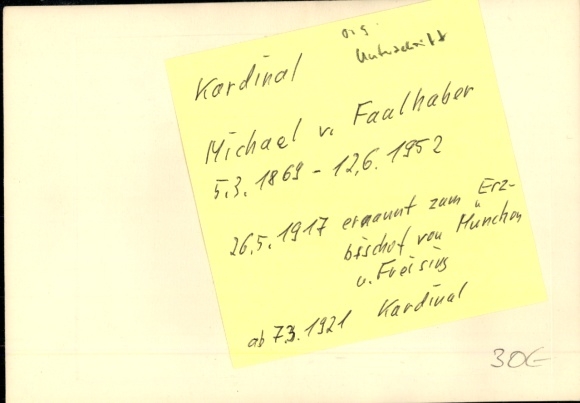 Kardinal
Org.
Unterschrift
Michael v. Faalhaber
5.3.1869 - 12.6.1952
26.5.1917 ernannt zum Erz-
bischof von München
u. Freising
ab 7.3.1921 Kardinal
30€